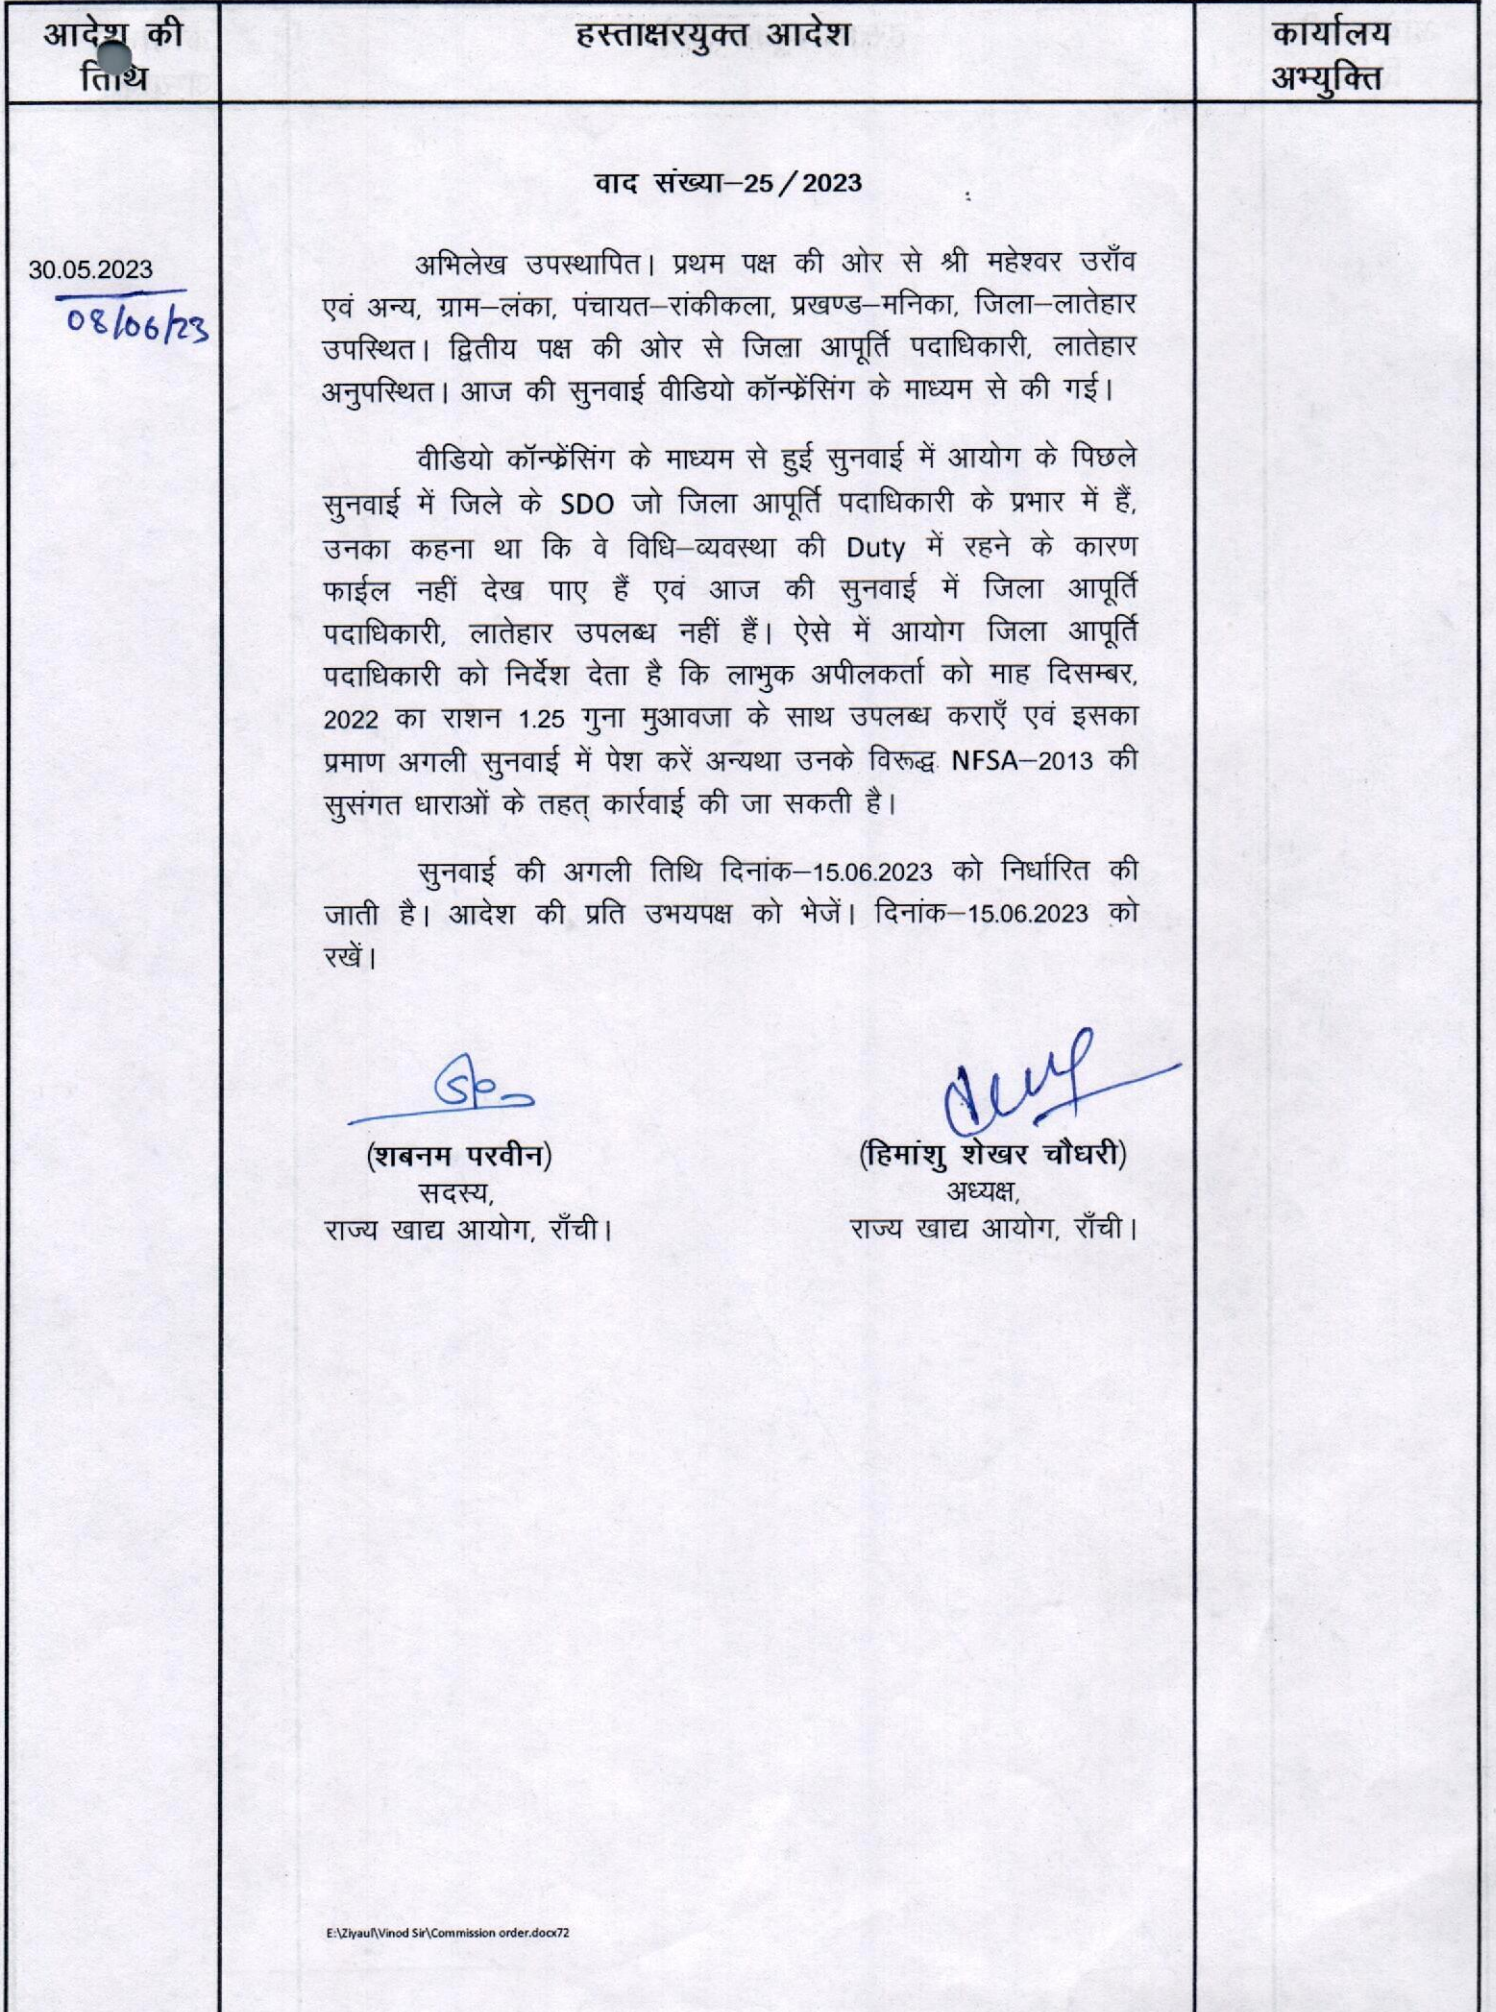 आदेश की
तिथि
हस्ताक्षरयुक्त आदेश
कार्यालय
अभ्युक्ति
वाद संख्या–25/2023
30.05.2023
08/06/23
अभिलेख उपस्थापित। प्रथम पक्ष की ओर से श्री महेश्वर उराँव
एवं अन्य, ग्राम–लंका, पंचायत–रांकीकला, प्रखण्ड–मनिका, जिला–लातेहार
उपस्थित। द्वितीय पक्ष की ओर से जिला आपूर्ति पदाधिकारी, लातेहार
अनुपस्थित। आज की सुनवाई वीडियो कॉन्फ्रेंसिंग के माध्यम से की गई।
वीडियो कॉन्फ्रेंसिंग के माध्यम से हुई सुनवाई में आयोग के पिछले
सुनवाई में जिले के SDO जो जिला आपूर्ति पदाधिकारी के प्रभार में हैं,
उनका कहना था कि वे विधि–व्यवस्था की Duty में रहने के कारण
फाईल नहीं देख पाए हैं एवं आज की सुनवाई में जिला आपूर्ति
पदाधिकारी, लातेहार उपलब्ध नहीं हैं। ऐसे में आयोग जिला आपूर्ति
पदाधिकारी को निर्देश देता है कि लाभुक अपीलकर्ता को माह दिसम्बर,
2022 का राशन 1.25 गुना मुआवजा के साथ उपलब्ध कराएँ एवं इसका
प्रमाण अगली सुनवाई में पेश करें अन्यथा उनके विरूद्ध NFSA–2013 की
सुसंगत धाराओं के तहत् कार्रवाई की जा सकती है।
सुनवाई की अगली तिथि दिनांक–15.06.2023 को निर्धारित की
जाती है। आदेश की प्रति उभयपक्ष को भेजें। दिनांक–15.06.2023 को
रखें।
(शबनम परवीन)
सदस्य,
राज्य खाद्य आयोग, राँची।
(हिमांशु शेखर चौधरी)
अध्यक्ष,
राज्य खाद्य आयोग, राँची।
E:\Ziyaul\Vinod Sir\Commission order.docx72